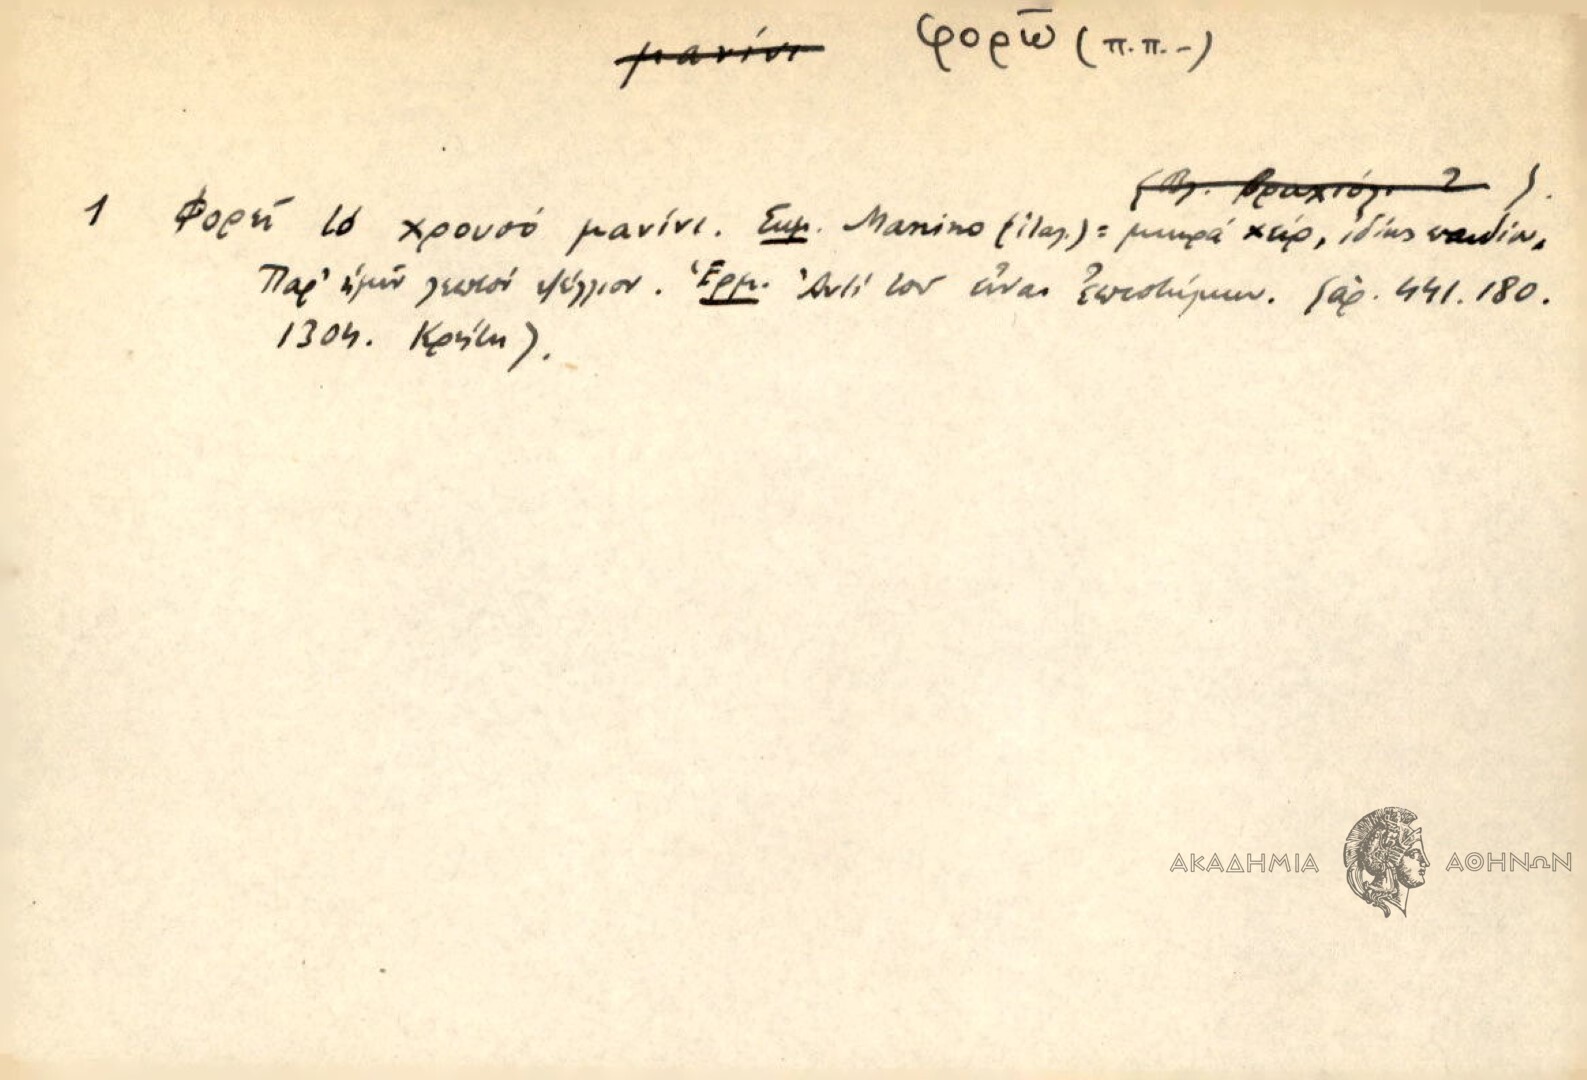 μανίνι φορῶ (π.π.-)
(Βλ. βραχιόλι 2).
1 Φορεῖ τό χρουσό μανίνι. Σημ. Manino (ἰταλ.) = μικρά χείρ, ἰδίως παιδίου.
Παρ' ἡμῖν λεπτόν ψέλλιον. Ἑρμ. Ἀντί τοῦ εἶναι ἐπιστήμων. (ἀρ. 441. 180.
1304. Κρήτη).
ΑΚΑΔΗΜΙΑ ΑΘΗΝΩΝ